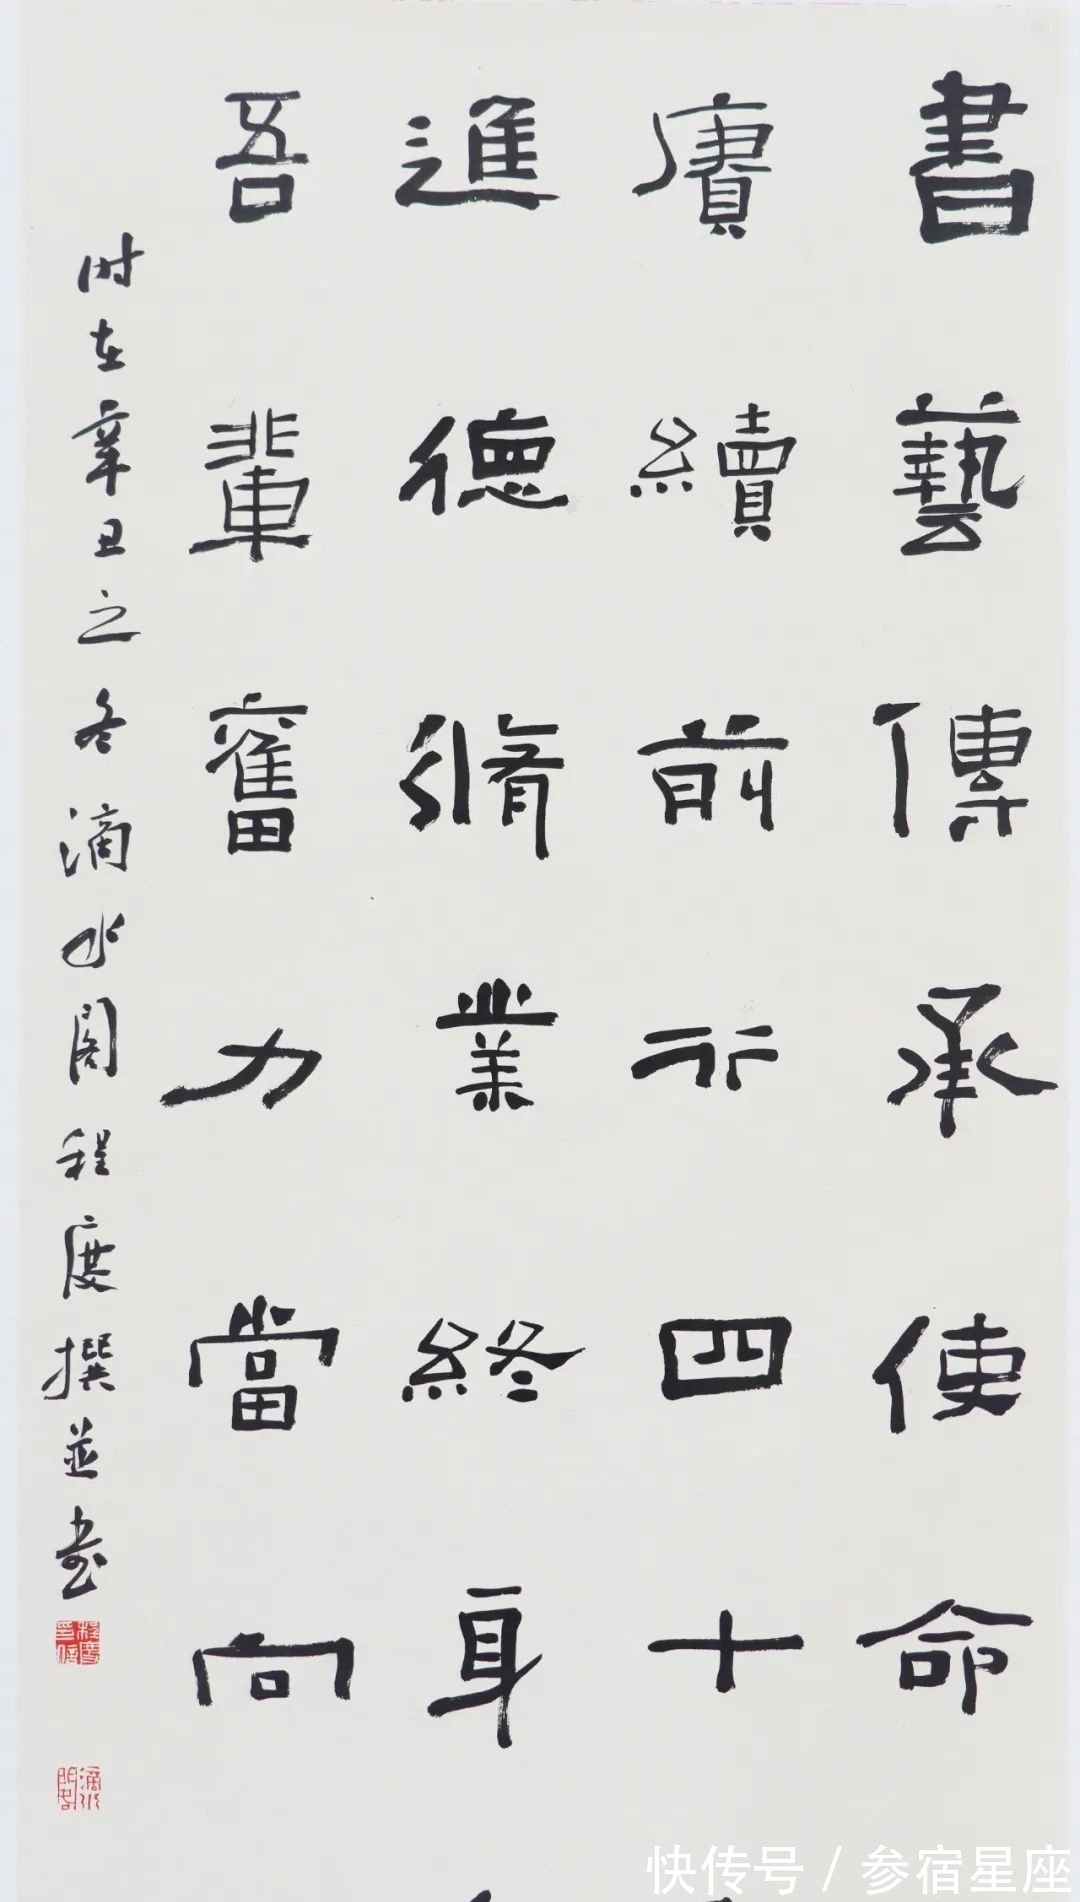 書藝傳承使命
賡續前行四十
進德脩業終身
吾輩奮力當向
时在辛丑之冬滴水阁程度撰並书
程度
滴水
快传号 / 参宿星座